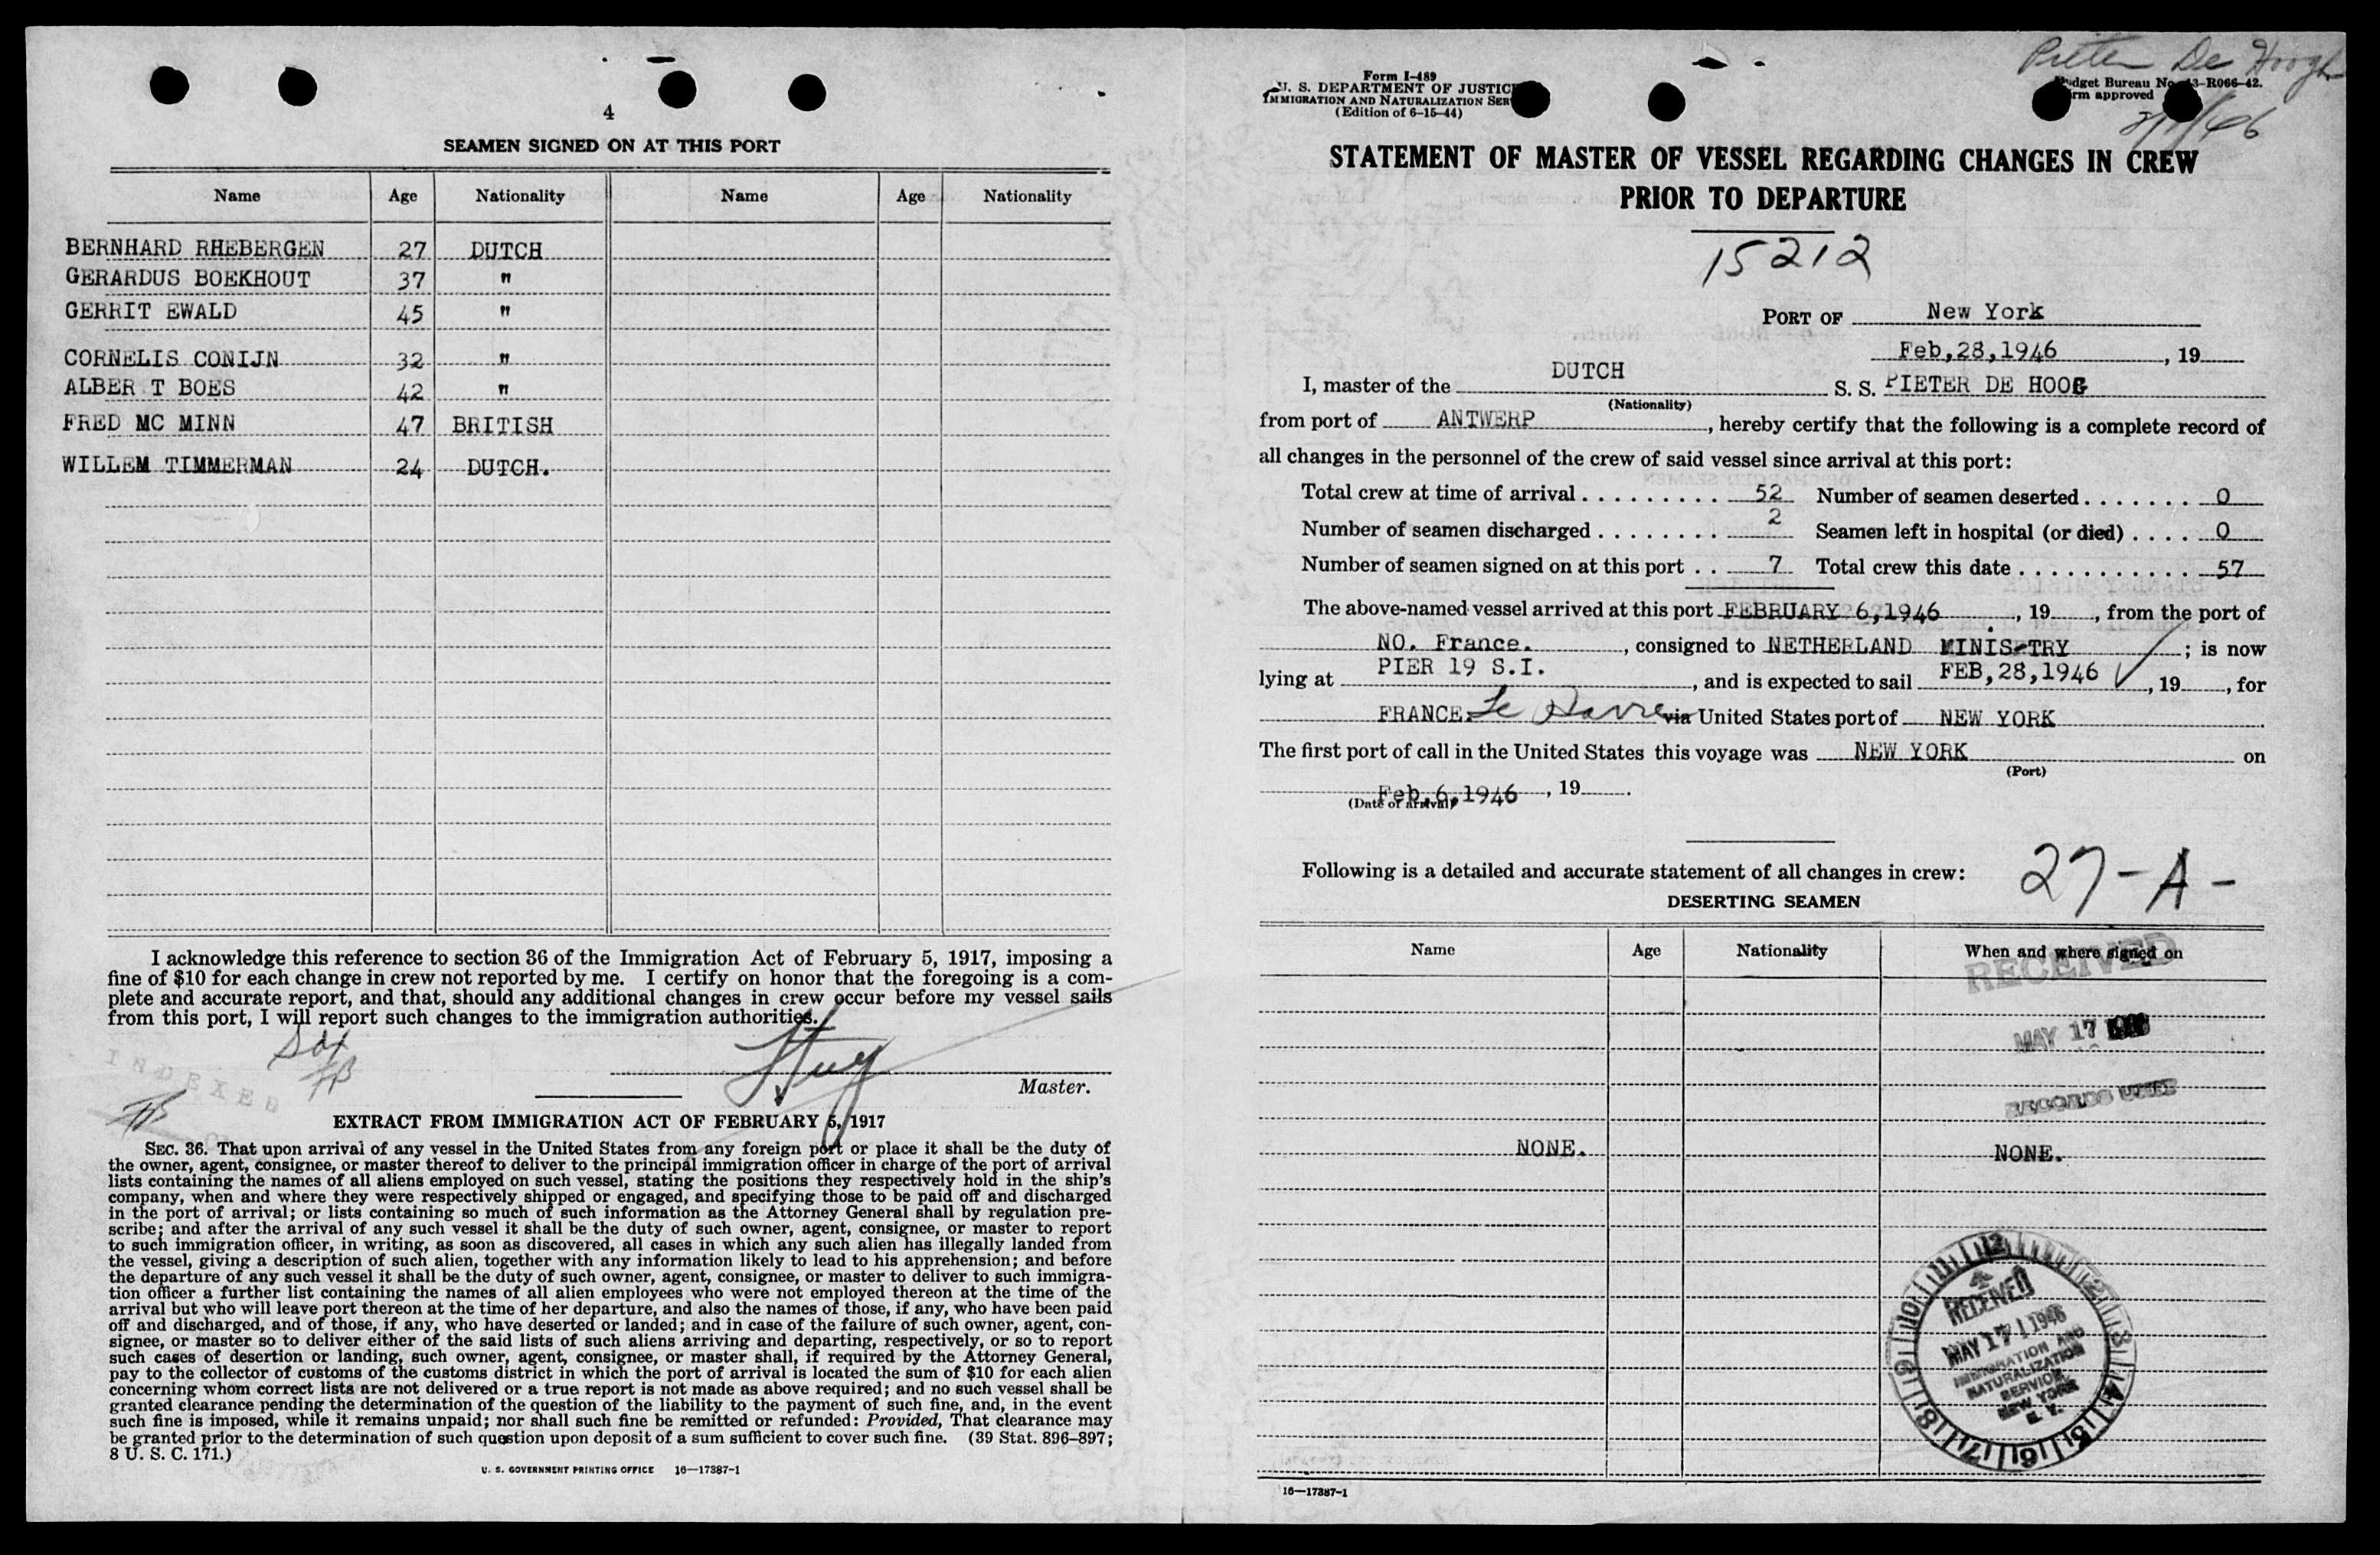 4
SEAMEN SIGNED ON AT THIS PORT
Name Age Nationality Name Age Nationality
BERNHARD RHEBERGEN 27 DUTCH
GERARDUS BOEKHOUT 37 "
GERRIT EWALD 45 "
CORNELIS CONIJN 32 "
ALBER T BOES 42 "
FRED MC MINN 47 BRITISH
WILLEM TIMMERMAN 24 DUTCH.
I acknowledge this reference to section 36 of the Immigration Act of February 5, 1917, imposing a
fine of $10 for each change in crew not reported by me. I certify on honor that the foregoing is a com-
plete and accurate report, and that, should any additional changes in crew occur before my vessel sails
from this port, I will report such changes to the immigration authorities.
INDEXED
Master.
EXTRACT FROM IMMIGRATION ACT OF FEBRUARY 5, 1917
SEC. 36. That upon arrival of any vessel in the United States from any foreign port or place it shall be the duty of
the owner, agent, consignee, or master thereof to deliver to the principal immigration officer in charge of the port of arrival
lists containing the names of all aliens employed on such vessel, stating the positions they respectively hold in the ship's
company, when and where they were respectively shipped or engaged, and specifying those to be paid off and discharged
in the port of arrival; or lists containing so much of such information as the Attorney General shall by regulation pre-
scribe; and after the arrival of any such vessel it shall be the duty of such owner, agent, consignee, or master to report
to such immigration officer, in writing, as soon as discovered, all cases in which any such alien has illegally landed from
the vessel, giving a description of such alien, together with any information likely to lead to his apprehension; and before
the departure of any such vessel it shall be the duty of such owner, agent, consignee, or master to deliver to such immigra-
tion officer a further list containing the names of all alien employees who were not employed thereon at the time of the
arrival but who will leave port thereon at the time of her departure, and also the names of those, if any, who have been paid
off and discharged, and of those, if any, who have deserted or landed; and in case of the failure of such owner, agent, con-
signee, or master so to deliver either of the said lists of such aliens arriving and departing, respectively, or so to report
such cases of desertion or landing, such owner, agent, consignee, or master shall, if required by the Attorney General,
pay to the collector of customs of the customs district in which the port of arrival is located the sum of $10 for each alien
concerning whom correct lists are not delivered or a true report is not made as above required; and no such vessel shall be
granted clearance pending the determination of the question of the liability to the payment of such fine, and, in the event
such fine is imposed, while it remains unpaid; nor shall such fine be remitted or refunded: Provided, That clearance may
be granted prior to the determination of such question upon deposit of a sum sufficient to cover such fine. (39 Stat. 896–897;
8 U. S. C. 171.)
U. S. GOVERNMENT PRINTING OFFICE 16—17387-1
Pieter De Hoogh
Form I-489
U. S. DEPARTMENT OF JUSTIC
IMMIGRATION AND NATURALIZATION SER
(Edition of 6-15-44)
dget Bureau No. 3-R066-42.
rm approved
STATEMENT OF MASTER OF VESSEL REGARDING CHANGES IN CREW
PRIOR TO DEPARTURE
15212
PORT OF New York
Feb,28,1946, 19
I, master of the DUTCH S. S. PIETER DE HOOG
(Nationality)
from port of ANTWERP, hereby certify that the following is a complete record of
all changes in the personnel of the crew of said vessel since arrival at this port:
Total crew at time of arrival 52 Number of seamen deserted 0
Number of seamen discharged 2 Seamen left in hospital (or died) 0
Number of seamen signed on at this port 7 Total crew this date 57
The above-named vessel arrived at this port FEBRUARY 6,1946, 19, from the port of
NO. France., consigned to NETHERLAND MINIS-TRY; is now
lying at PIER 19 S.I., and is expected to sail FEB,28,1946, 19, for
FRANCE. Le Havre via United States port of NEW YORK
The first port of call in the United States this voyage was NEW YORK on
(Port)
Feb,6,1946, 19.
(Date of arrival)
Following is a detailed and accurate statement of all changes in crew:
27-A-
DESERTING SEAMEN
Name Age Nationality When and where signed on
RECEIVED
MAY 17
RECORDS
NONE. NONE.
RECEIVED
MAY 17 1946
IMMIGRATION AND
NATURALIZATION
SERVICE
NEW YORK
N. Y.
16—17387-1